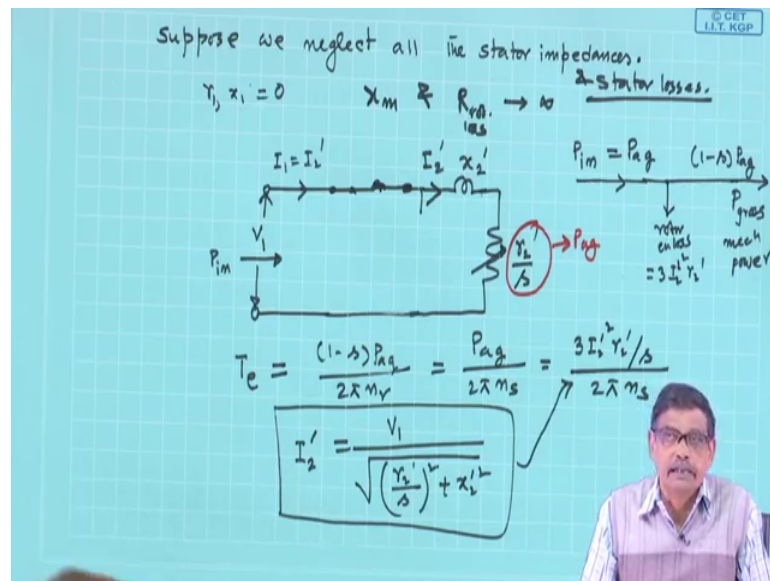 © CET
I.I.T. KGP
Suppose we neglect all the stator impedances.
& Stator losses.
r₁, x₁ = 0 Xm & R → ∞
loss
I₁ = I₂' I₂' x₂'
V₁
Pin
r₂'/s → Pag
Pin = Pag (1-s) Pag
rotor
cu loss
= 3I₂'² r₂'
Pgross
mech
power
Te = (1-s) Pag / 2π nr = Pag / 2π ns = 3I₂'² r₂'/s / 2π ns
I₂' = V₁ / √((r₂'/s)² + x₂'²)